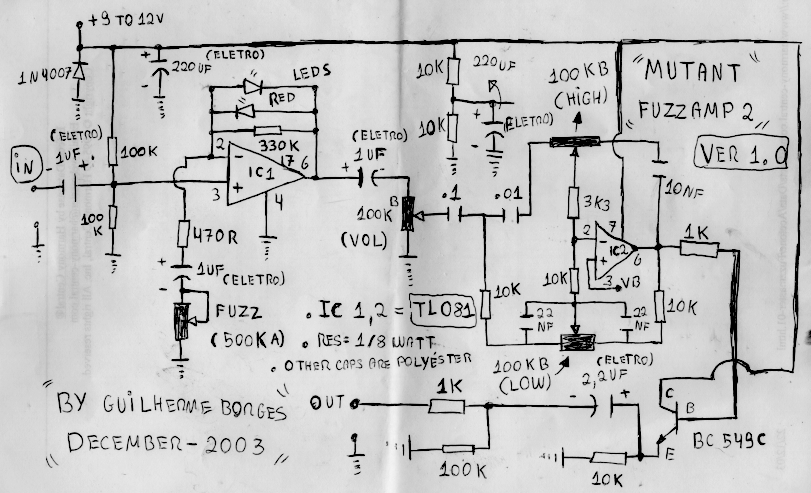 +9 TO 12V
1N4007
220UF
(ELETRO)
LEDS
RED
330K
(ELETRO)
1UF
iN
100K
100
K
2
3
IC1
7
6
4
(ELETRO)
1UF
B
100K
(VOL)
.1
.01
470R
1UF
(ELETRO)
FUZZ
(500KA)
10K
10K
220UF
(ELETRO)
100KB
(HIGH)
"MUTANT"
"FUZZAMP 2"
VER 1.0
10NF
3K3
2
7
IC2
6
3
VB
1K
10K
10K
10K
22
NF
22
NF
100KB
(LOW)
. IC 1,2 = TL081
. RES= 1/8 WATT
. OTHER CAPS ARE POLYÉSTER
(ELETRO)
2,2UF
OUT
1K
100K
10K
C
B
E
BC 549C
"BY GUILHERME BORGES"
"DECEMBER-2003"